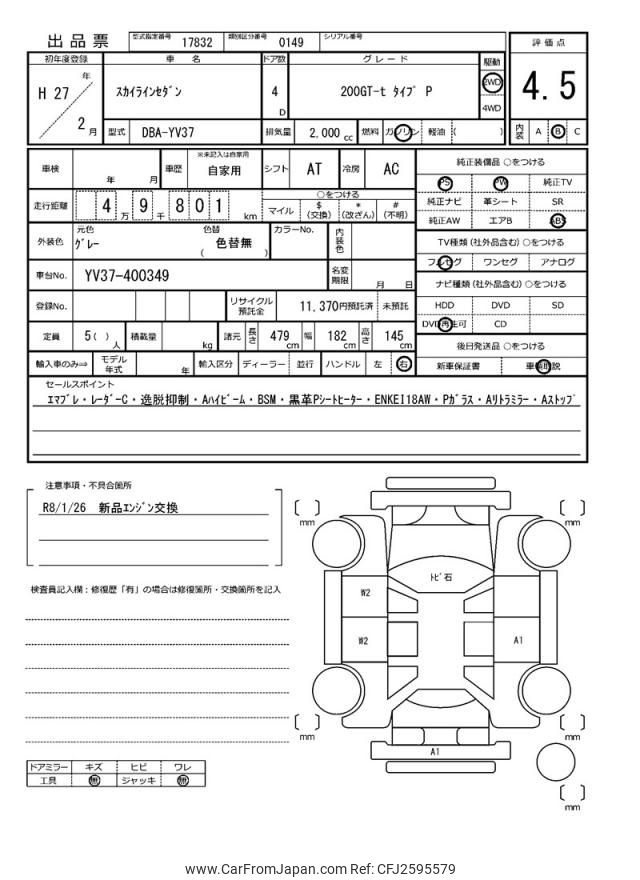 出品票 型式指定番号 17832 類別区分番号 0149 シリアル番号
初年度登録 車 名 ドア数 グレード 駆動 評価点
H 27 年 2 月 スカイラインセダン 4 D 200GT-t タイプ P 2WD 4WD 4.5
型式 DBA-YV37 排気量 2,000 cc 燃料 ガソリン 軽油 ( ) 内装 A B C
車検 年 月 車歴 ※未記入は自家用 自家用 シフト AT 冷房 AC
純正装備品 ○をつける
PS PW 純正TV
純正ナビ 革シート SR
純正AW エアB ABS
走行距離 4 万 9 千 8 0 1 km
○をつける
マイル $ (交換) * (改ざん) # (不明)
外装色 元色 グレー 色替 色替無 ( ) カラーNo. 内装色
TV種類 (社外品含む) ○をつける
フルセグ ワンセグ アナログ
車台No. YV37-400349 名変期限 月 日
ナビ種類 (社外品含む) ○をつける
HDD DVD SD
DVD再生可 CD
登録No. リサイクル預託金 11,370円預託済 未預託
定員 5 ( ) 人 積載量 kg 諸元 長さ 479 cm 幅 182 cm 高さ 145 cm
後日発送品 ○をつける
新車保証書 車輌取説
輸入車のみ⇒ モデル年式 年 輸入区分 ディーラー 並行 ハンドル 左 右
セールスポイント
エマブレ・レーダーC・逸脱抑制・Aハイビーム・BSM・黒革Pシートヒーター・ENKEI18AW・Pガラス・Aリトラミラー・Aストップ
注意事項・不具合箇所
R8/1/26 新品エンジン交換
検査員記入欄:修復歴「有」の場合は修復箇所・交換箇所を記入
[ ] mm
[ ] mm
トビ石
W2
W2
A1
[ ] mm
[ ] mm
A1
[ ] mm
ドアミラー キズ ヒビ ワレ
工具 無 ジャッキ 無
www.CarFromJapan.com Ref: CFJ2595579